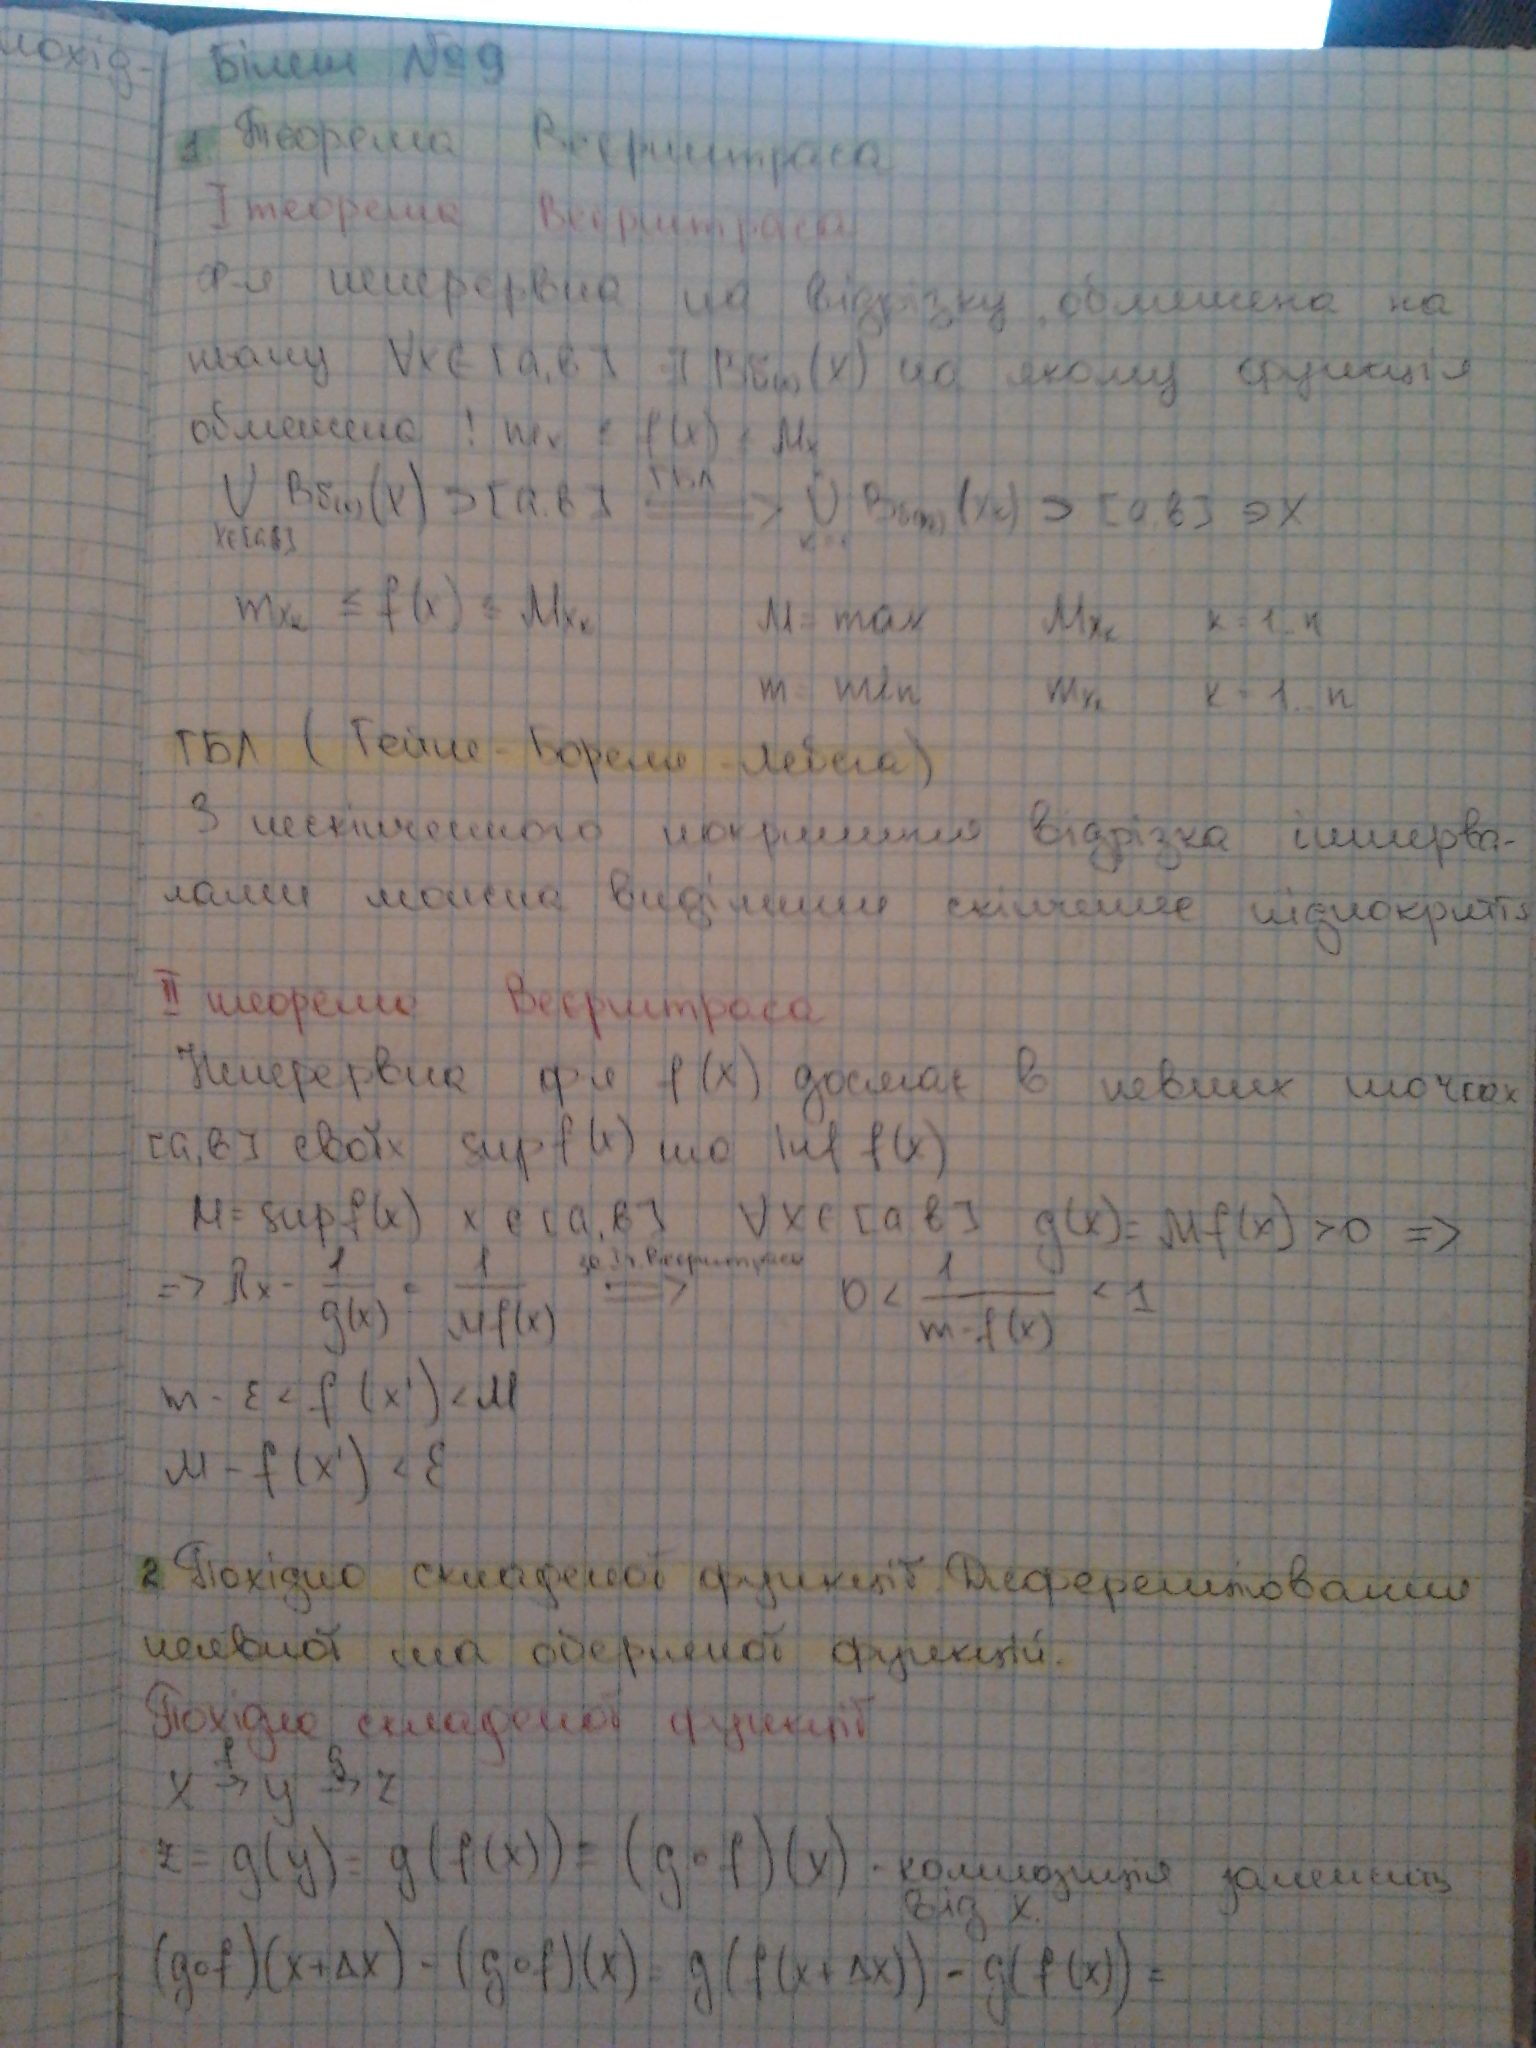 похід-
Білет №9
1. Теорема Веєрштраса
I теорема Веєрштраса
Ф-я неперервна на відрізку, обмежена на
ньому ∀x∈[a,b] ∃ Bδ(x)(x) на якому функція
обмежена! mx ≤ f(x) ≤ Mx
∪ Bδ(x)(x) ⊃ [a,b] ГБЛ ⟹ ∪ Bδ(xk)(xk) ⊃ [a,b] ∋ x
x∈[a,b]
mxk ≤ f(x) ≤ Mxk M = max Mxk k=1..n
m = min mxk k=1..n
ГБЛ (Гейне-Бореля-Лебега)
З нескінченного покриття відрізка інтерва-
лами можна виділити скінченне підпокриття
II теорема Веєрштраса
Неперервна ф-я f(x) досягає в певних точках
[a,b] своїх sup f(x) та inf f(x)
M = sup f(x) x∈[a,b] ∀x∈[a,b] g(x) = Mf(x) > 0 =>
за Iт. Веєрштраса
1/g(x) = 1/Mf(x) => 0 < 1/(m-f(x)) < 1
m - ε < f(x') < M
M - f(x') < ε
2. Похідна складеної функції. Диференціювання
неявної та оберненої функцій.
Похідна складеної функції
x f→ y g→ z
z = g(y) = g(f(x)) = (g∘f)(x) - композиція залежить
від x.
(g∘f)(x+Δx) - (g∘f)(x) = g(f(x+Δx)) - g(f(x)) =